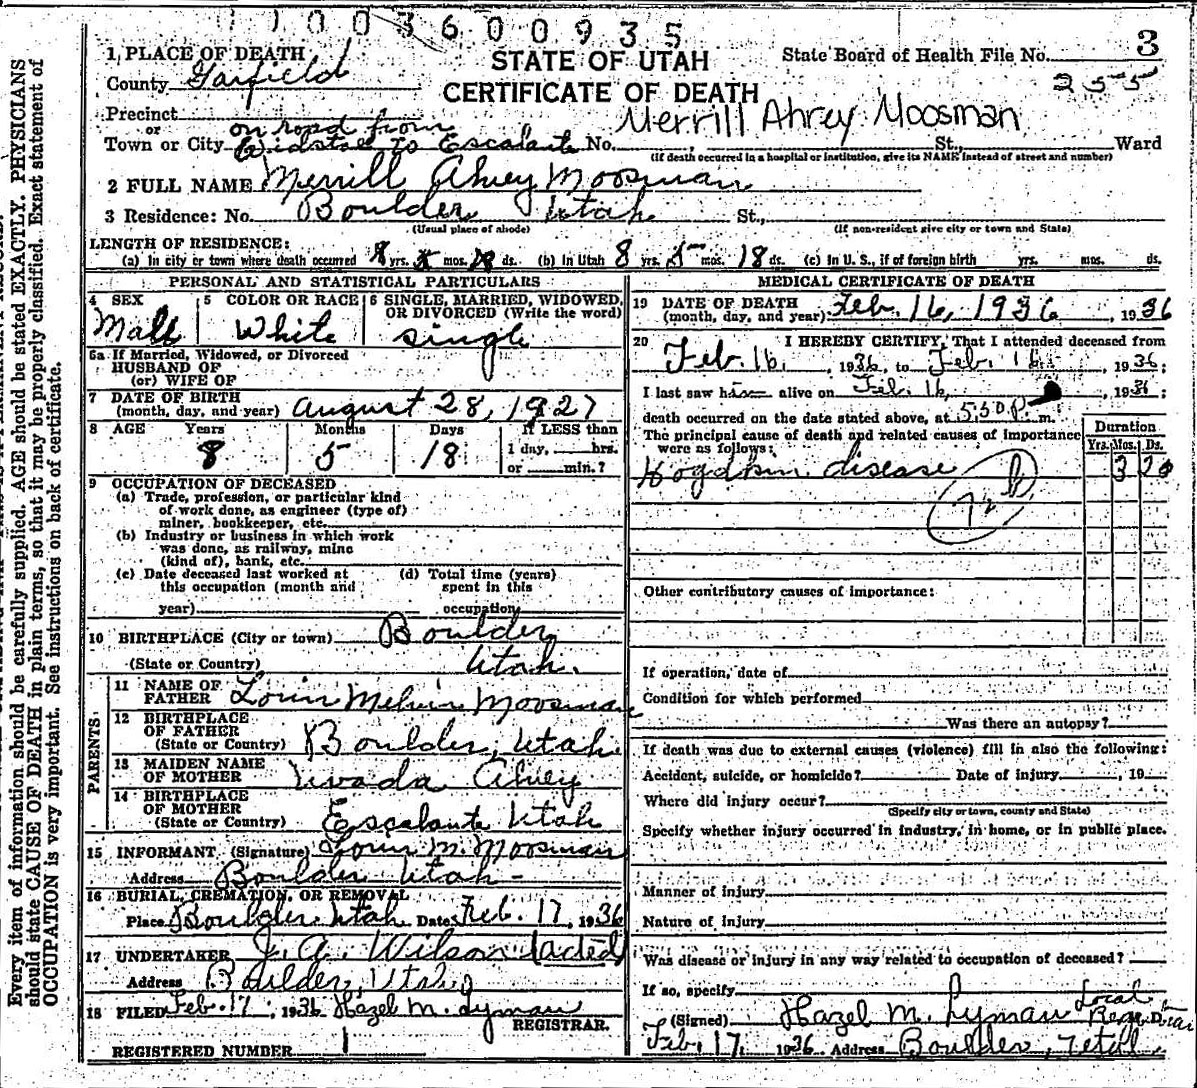 1003600935
3
1 PLACE OF DEATH
STATE OF UTAH
State Board of Health File No.
County Garfield
255
CERTIFICATE OF DEATH
Precinct
Merrill Ahrey Moosman
or
on road from
Town or City Widstoe to Escalante No. St., Ward
(If death occurred in a hospital or institution, give its NAME instead of street and number)
2 FULL NAME Merrill Ahrey Moosman
3 Residence: No. Boulder Utah St.,
(Usual place of abode) (If non-resident give city or town and State)
LENGTH OF RESIDENCE:
(a) In city or town where death occurred 8 yrs. 5 mos. 18 ds. (b) In Utah 8 yrs. 5 mos. 18 ds. (c) In U. S., if of foreign birth yrs. mos. ds.
PERSONAL AND STATISTICAL PARTICULARS
4 SEX 5 COLOR OR RACE 6 SINGLE, MARRIED, WIDOWED,
OR DIVORCED (Write the word)
Male White single
6a If Married, Widowed, or Divorced
HUSBAND OF
(or) WIFE OF
7 DATE OF BIRTH
(month, day, and year) August 28, 1927
8 AGE Years Months Days If LESS than
8 5 18 1 day, hrs.
or min.?
9 OCCUPATION OF DECEASED
(a) Trade, profession, or particular kind
of work done, as engineer (type of)
miner, bookkeeper, etc.
(b) Industry or business in which work
was done, as railway, mine
(kind of), bank, etc.
(c) Date deceased last worked at (d) Total time (years)
this occupation (month and spent in this
year) occupation
10 BIRTHPLACE (City or town) Boulder
(State or Country) Utah.
PARENTS
11 NAME OF
FATHER Lorin Melvin Moosman
12 BIRTHPLACE
OF FATHER
(State or Country) Boulder, Utah
13 MAIDEN NAME
OF MOTHER Nevada Ahrey
14 BIRTHPLACE
OF MOTHER
(State or Country) Escalante Utah
15 INFORMANT (Signature) Lorin M. Moosman
Address Boulder Utah -
16 BURIAL, CREMATION, OR REMOVAL
Place Boulder Utah Date Feb. 17, 1936
17 UNDERTAKER J. A. Wilson (acted)
Address Boulder, Utah
18 FILED Feb. 17, 1936 Hazel M. Lyman
REGISTRAR.
REGISTERED NUMBER 1
MEDICAL CERTIFICATE OF DEATH
19 DATE OF DEATH
(month, day, and year): Feb. 16, 1936, 1936
20 I HEREBY CERTIFY, That I attended deceased from
Feb. 16, 1936, to Feb. 16, 1936;
I last saw him alive on Feb. 16, 1936;
death occurred on the date stated above, at 5:30 P. m.
The principal cause of death and related causes of importance
were as follows:
Duration
Yrs. Mos. Ds.
Hogdkin disease 3 20
72 b
Other contributory causes of importance:
If operation, date of
Condition for which performed
Was there an autopsy?
If death was due to external causes (violence) fill in also the following:
Accident, suicide, or homicide? Date of injury , 19
Where did injury occur?
(Specify city or town, county and State)
Specify whether injury occurred in industry, in home, or in public place.
Manner of injury
Nature of injury
Was disease or injury in any way related to occupation of deceased?
If so, specify
Local
(Signed) Hazel M. Lyman
Feb. 17, 1936 Address Boulder, Utah
Every item of information should be carefully supplied. AGE should be stated EXACTLY. PHYSICIANS
should state CAUSE OF DEATH in plain terms, so that it may be properly classified. Exact statement of
OCCUPATION is very important. See instructions on back of certificate.